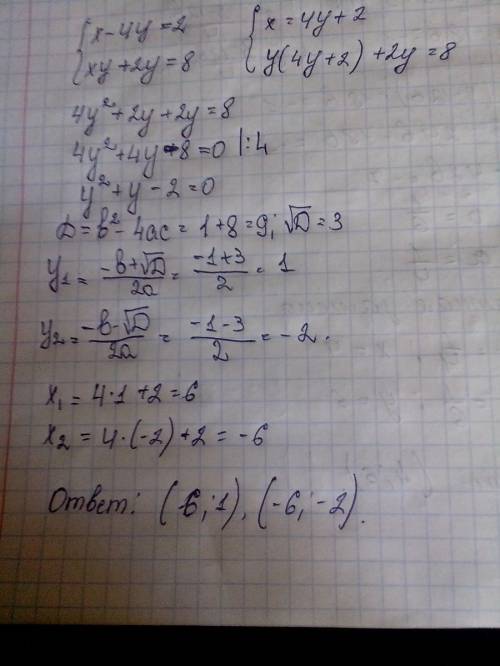 { x - 4y = 2    { x = 4y + 2
{ xy + 2y = 8    { y(4y + 2) + 2y = 8
4y² + 2y + 2y = 8
4y² + 4y - 8 = 0 |:4
y² + y - 2 = 0
D = b² - 4ac = 1 + 8 = 9; √D = 3
y₁ = (-b + √D)/2a = (-1 + 3)/2 = 1
y₂ = (-b - √D)/2a = (-1 - 3)/2 = -2.
x₁ = 4·1 + 2 = 6
x₂ = 4·(-2) + 2 = -6
Ответ: (6; 1), (-6; -2).